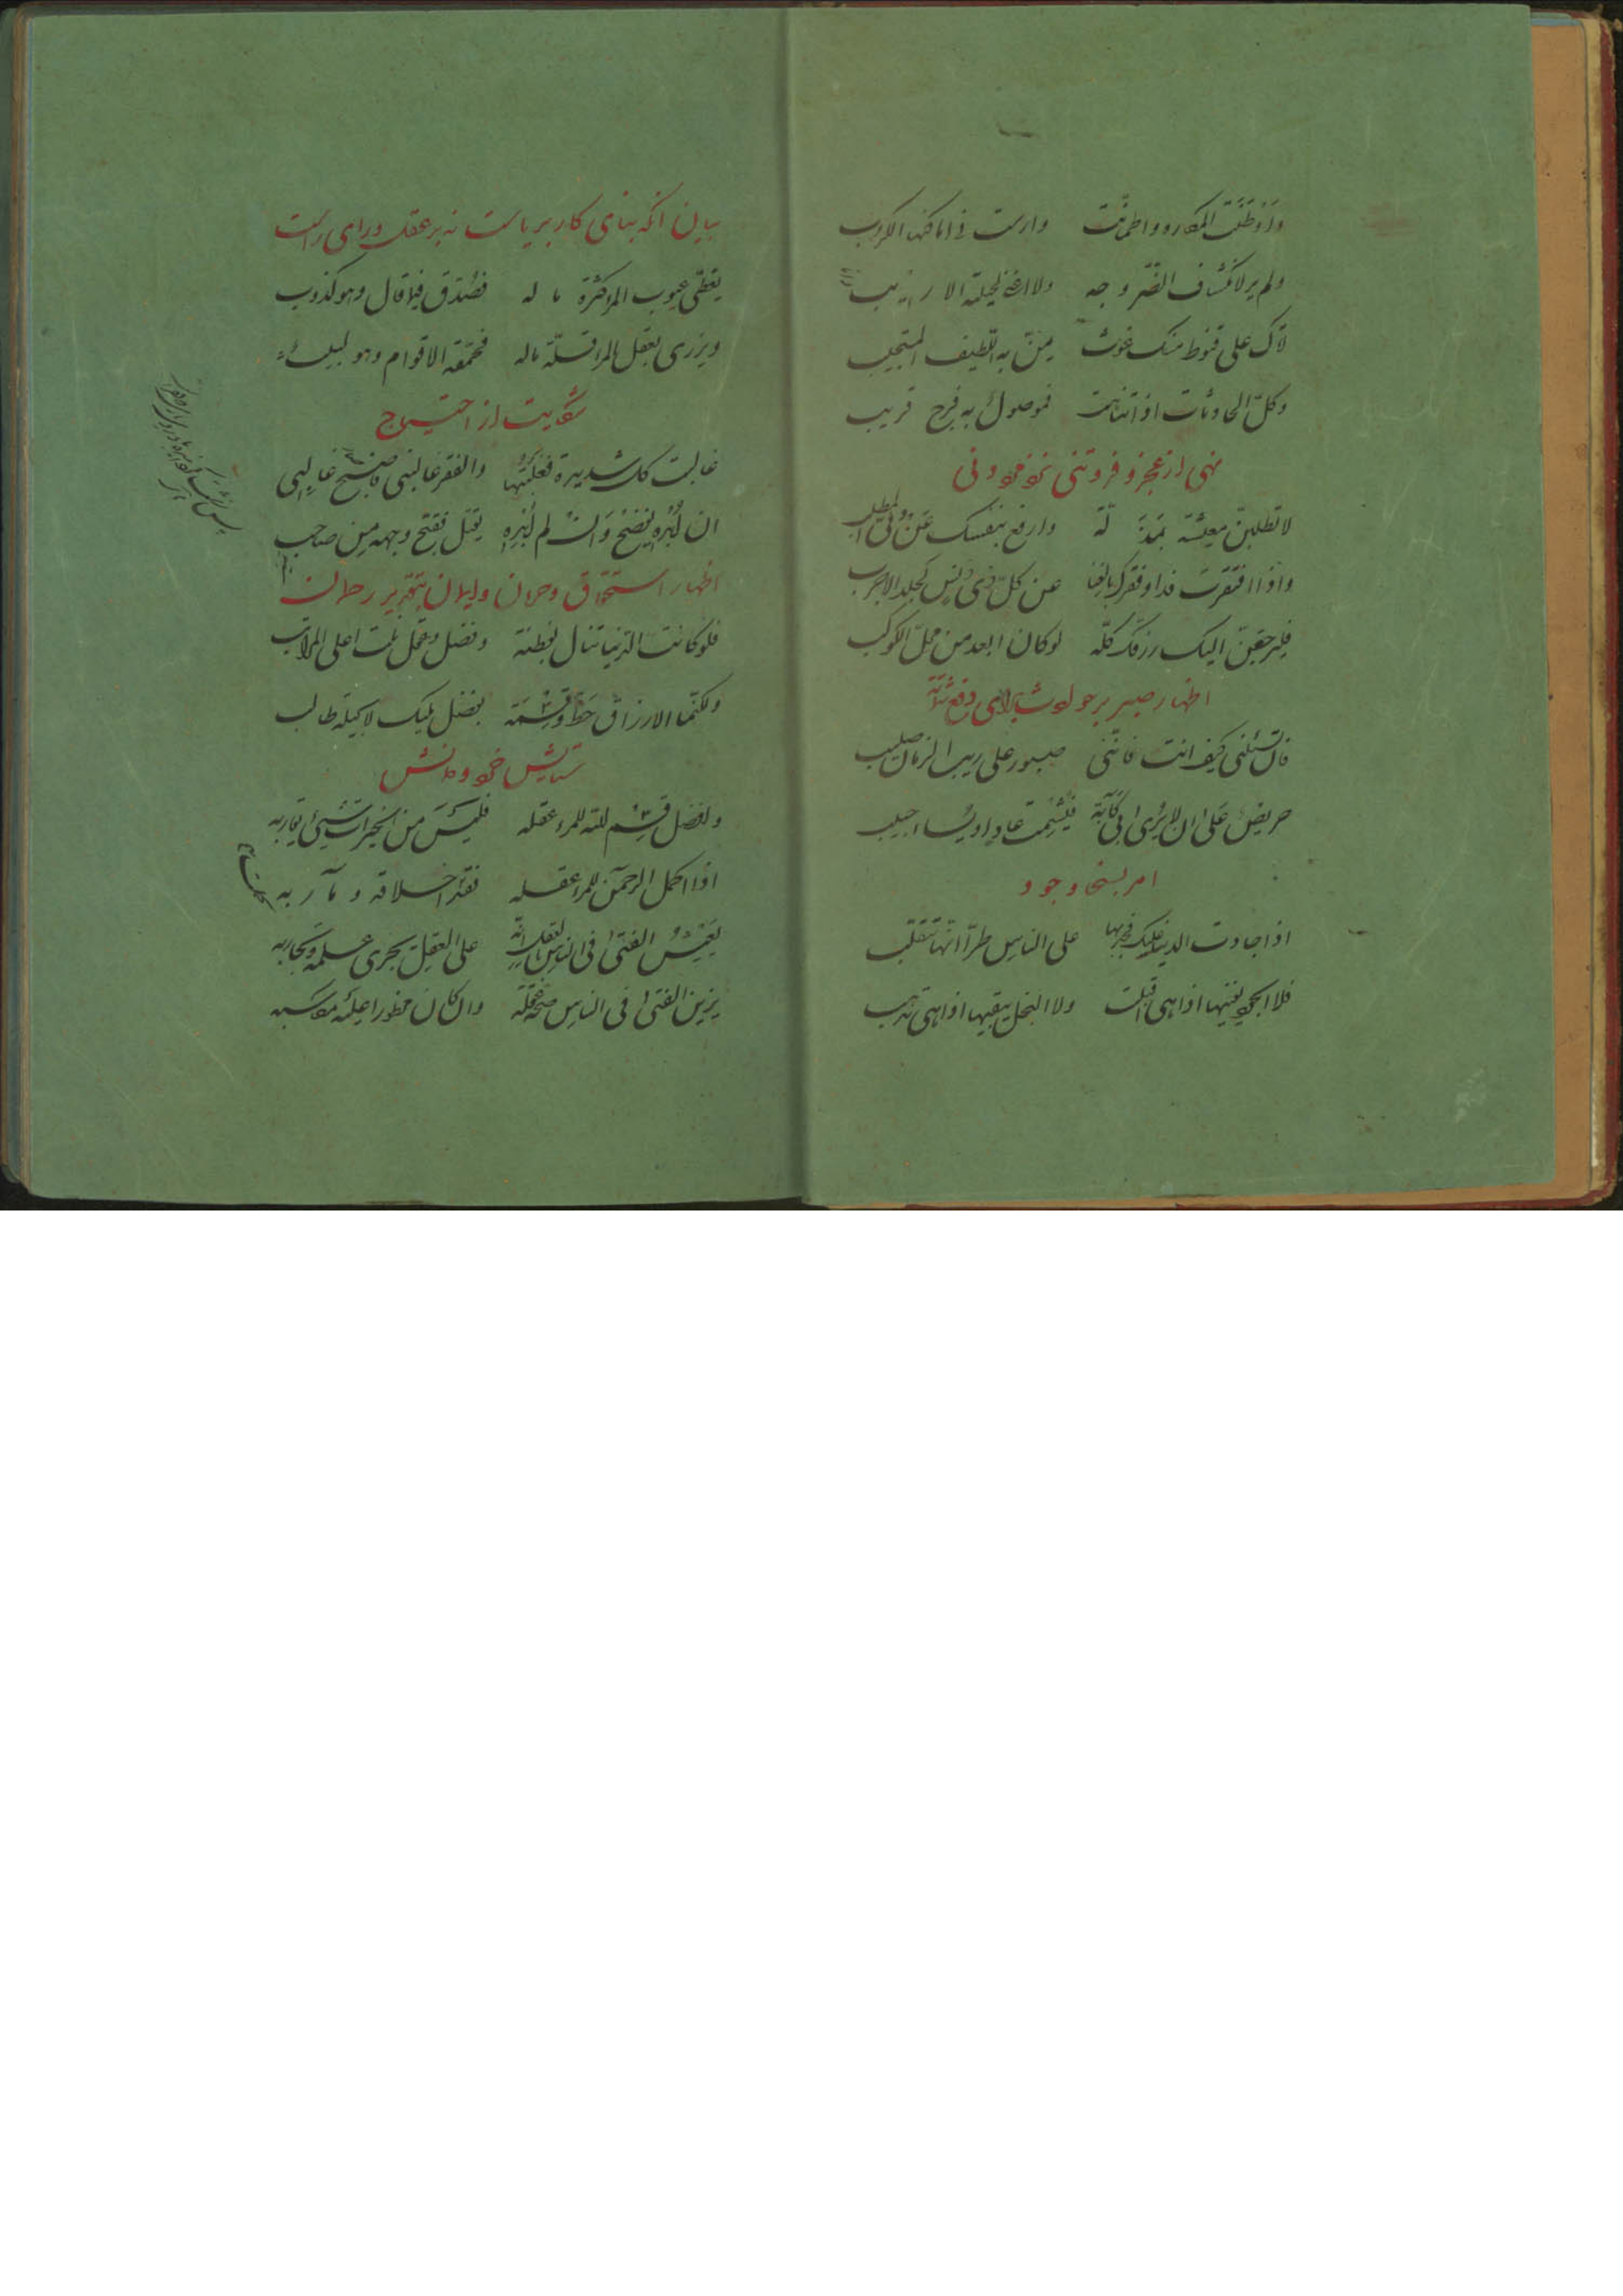 واوطنت المکاره واطمأنت وارست فی اماکنها الکروب
ولم یر لانکشاف الضر وجه ولا اغنی بحیلته الاریب
اتاک علی قنوط منک غوث یمن به اللطیف المستجیب
وکل الحادثات اذا تناهت فموصول به فرج قریب
نهی از عجز و فروتنی نزد مردم دنی
لا تطلبن معیشة بمذلة وارفع بنفسک عن دنی المطلب
واذا افتقرت فداو فقرک بالغنا عن کل ذی دنس کجلد الاجرب
فلیرجعن الیک رزقک کله لو کان ابعد من محل الکوکب
اظهار صبر بر حوادث برای دفع شماتت
فان تسئلنی کیف انت فاننی صبور علی ریب الزمان صلیب
حریص علی ان لا یری بی کآبة فیشمت عاد او یساء حبیب
امر بسخا وجود
اذا جادت الدنیا علیک فجد بها علی الناس طرا انها تتقلب
فلا الجود یفنیها اذا هی اقبلت ولا البخل یبقیها اذا هی تذهب
بیان آنکه بنای کار بر ... است نه بر عقل و رای راست
یغطی عیوب المرء کثرة ماله فصدق فیما قال وهو کذوب
ویزری بعقل المرء قلة ماله فحمقه الاقوام وهو لبیب
شکایت از احتیاج
غالبت کل شدیدة فغلبتها والفقر غالبنی فاصبح غالبی
ان ابده یفضح وان لم ابده یقتل فقبح وجهه من صاحب
اظهار استحقاق وحرمان ... بتقدیر ...
فلو کانت الدنیا تنال بفطنة وفضل وعقل نلت اعلی المراتب
ولکنما الارزاق حظ وقسمة بفضل ملیک لا بحیلة طالب
ستایش خرد و دانش
وافضل قسم الله للمرء عقله فلیس من الخیرات شیئ یقاربه
اذا اکمل الرحمن للمرء عقله فقد اخلاقه ومآربه
یعیش الفتی فی الناس بالعقل انه علی العقل یجری علمه وتجاربه
یزین الفتی فی الناس صحة عقله وان کان محظورا علیه مکاسبه